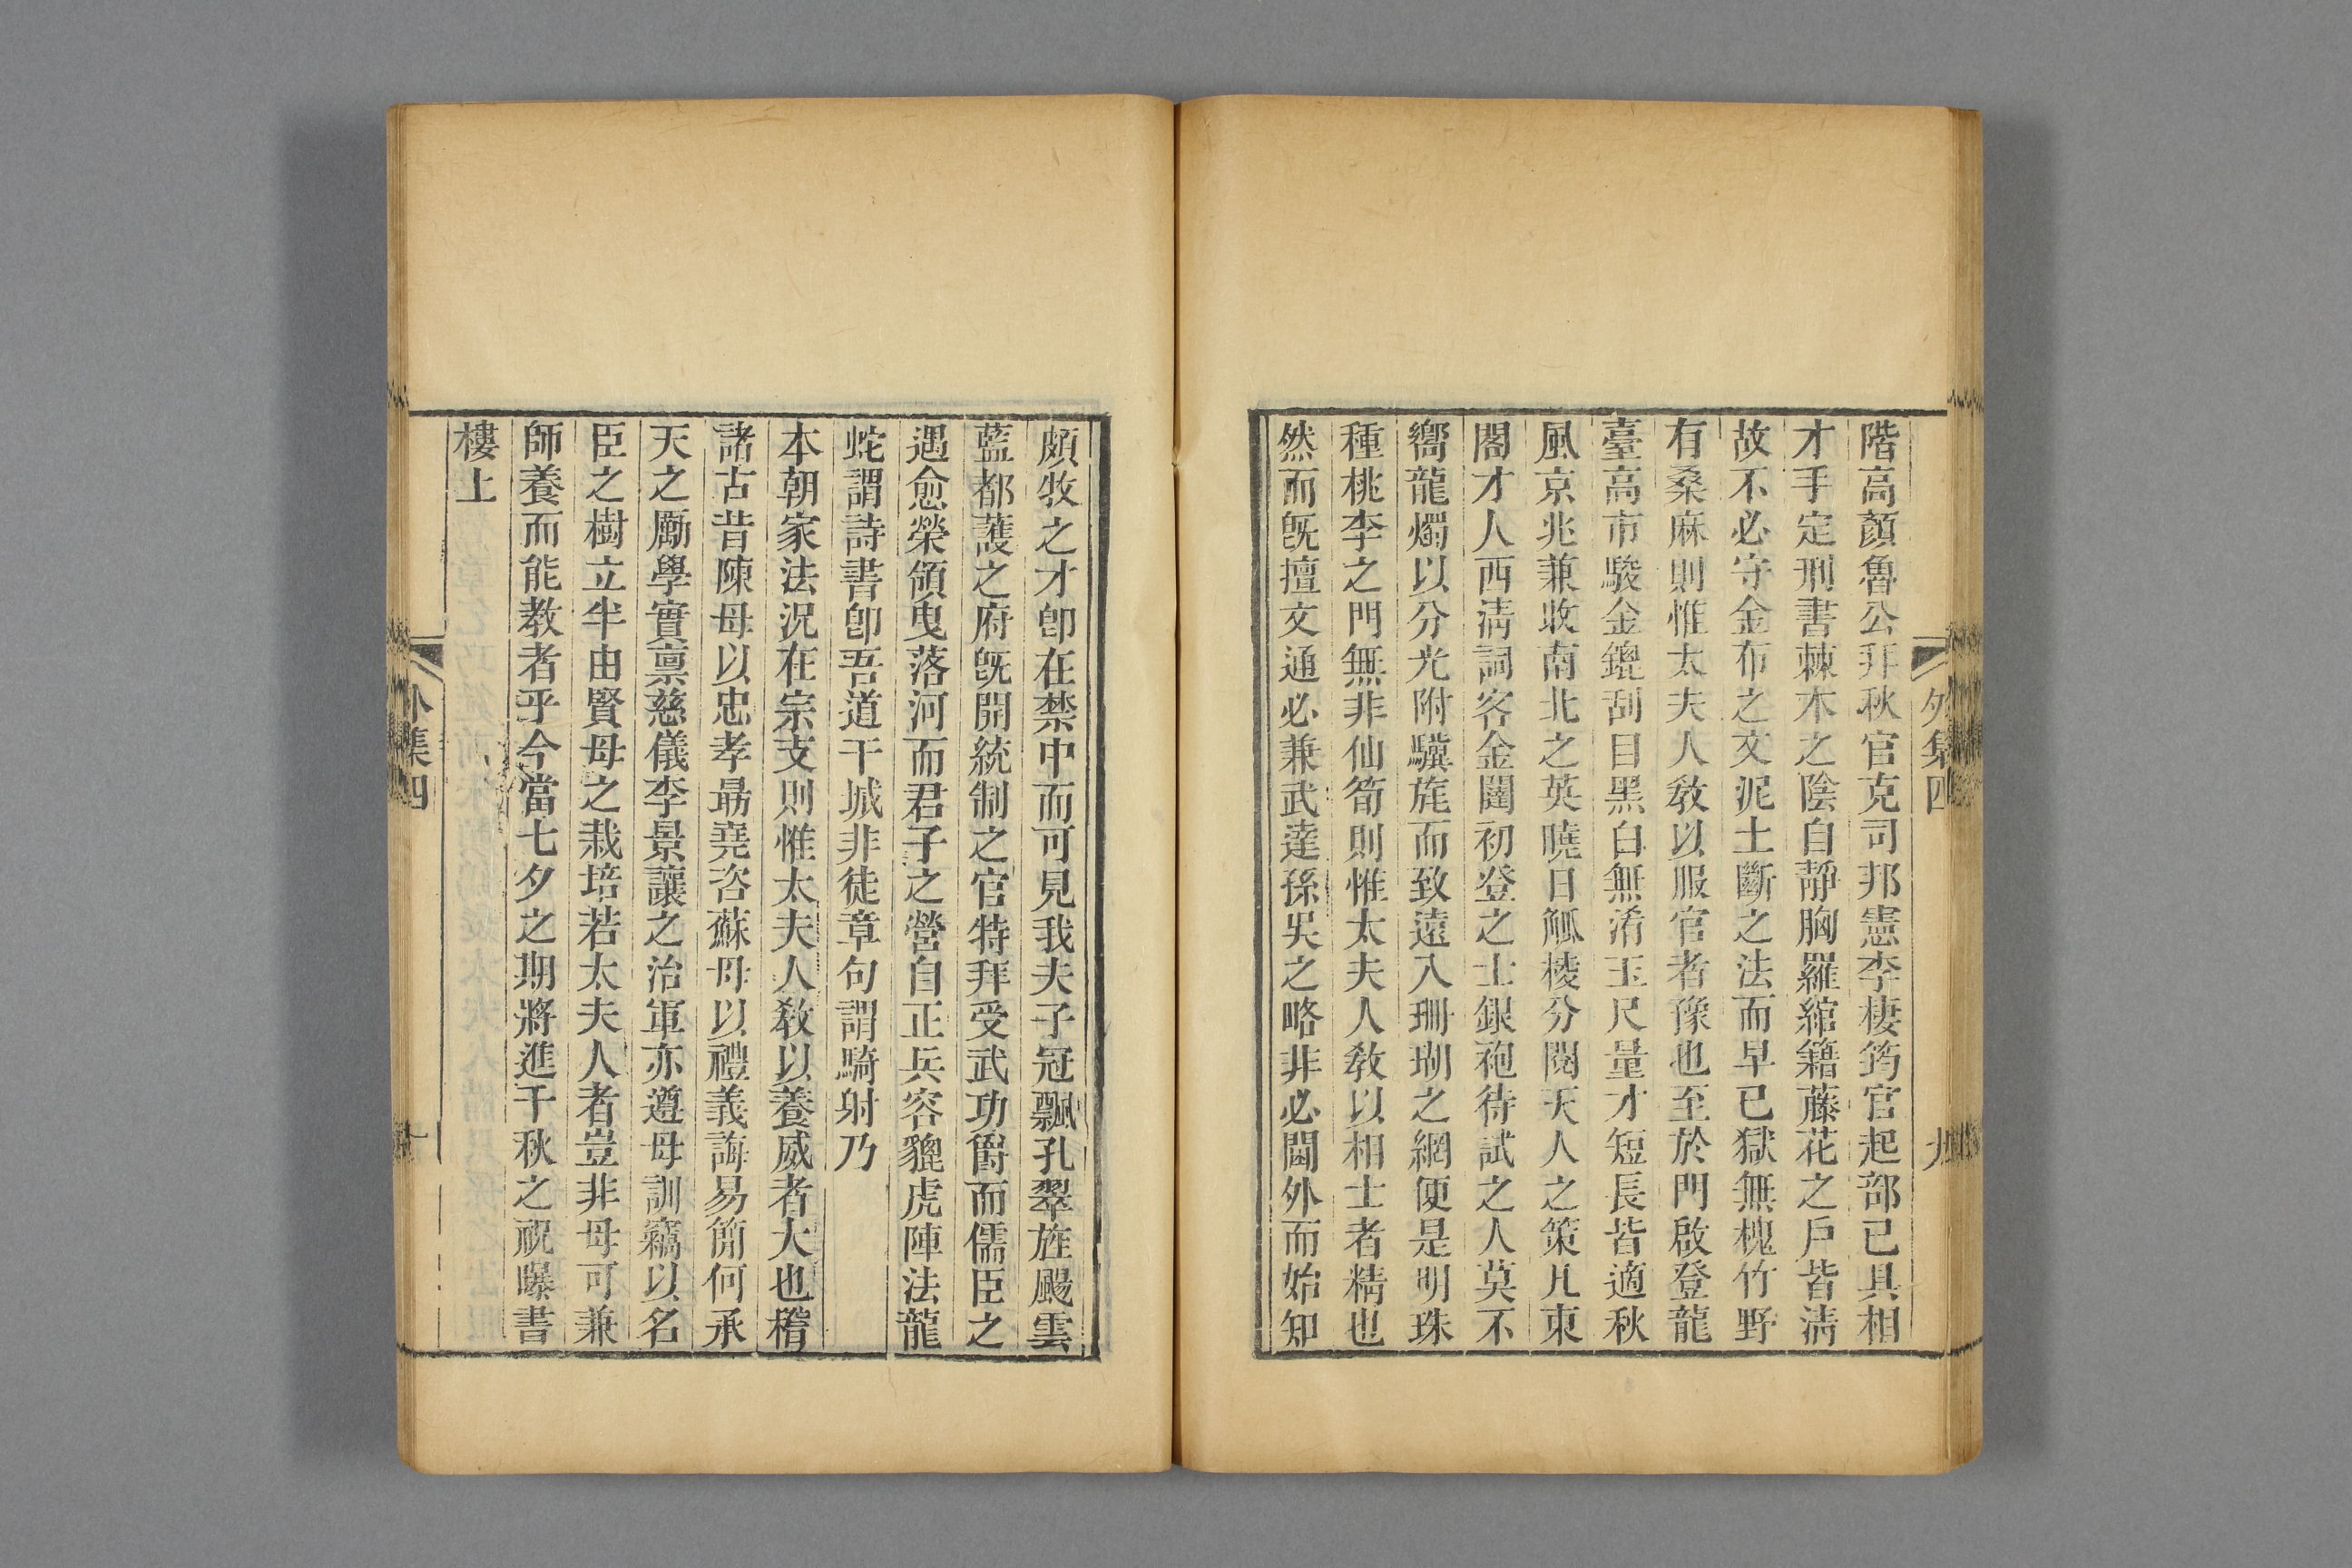 階高顏魯公拜秋官克司邦憲李棲筠官起部已具相
才手定刑書棘木之陰自靜胸羅綰籍藤花之戶皆淸
故不必守金布之文泥土斷之法而早已獄無槐竹野
有桑麻則惟太夫人敎以服官者豫也至於門啟登龍
臺高市駿金鎞刮目黑白無淆玉尺量才短長皆適秋
風京兆兼收南北之英曉日觚棱分閱天人之策凡東
閣才人西淸詞客金閨初登之士銀袍待試之人莫不
嚮龍燭以分光附驥旄而致遠入珊瑚之網便是明珠
種桃李之門無非仙筍則惟太夫人敎以相士者精也
然而旣擅文通必兼武達孫吳之略非必閫外而始知
外集四
九
頗牧之才卽在禁中而可見我夫子冠飄孔翠旌颺雲
藍都護之府旣開統制之官特拜受武功爵而儒臣之
遇愈榮領曳落河而君子之營自正兵容貔虎陣法龍
蛇謂詩書卽吾道干城非徒章句謂騎射乃
本朝家法況在宗支則惟太夫人敎以養威者大也稽
諸古昔陳母以忠孝勗堯咨蘇母以禮義誨易簡何承
天之勵學實禀慈儀李景讓之治軍亦遵母訓竊以名
臣之樹立半由賢母之栽培若太夫人者豈非母可兼
師養而能敎者乎今當七夕之期將進千秋之祝曝書
樓上
外集四
十